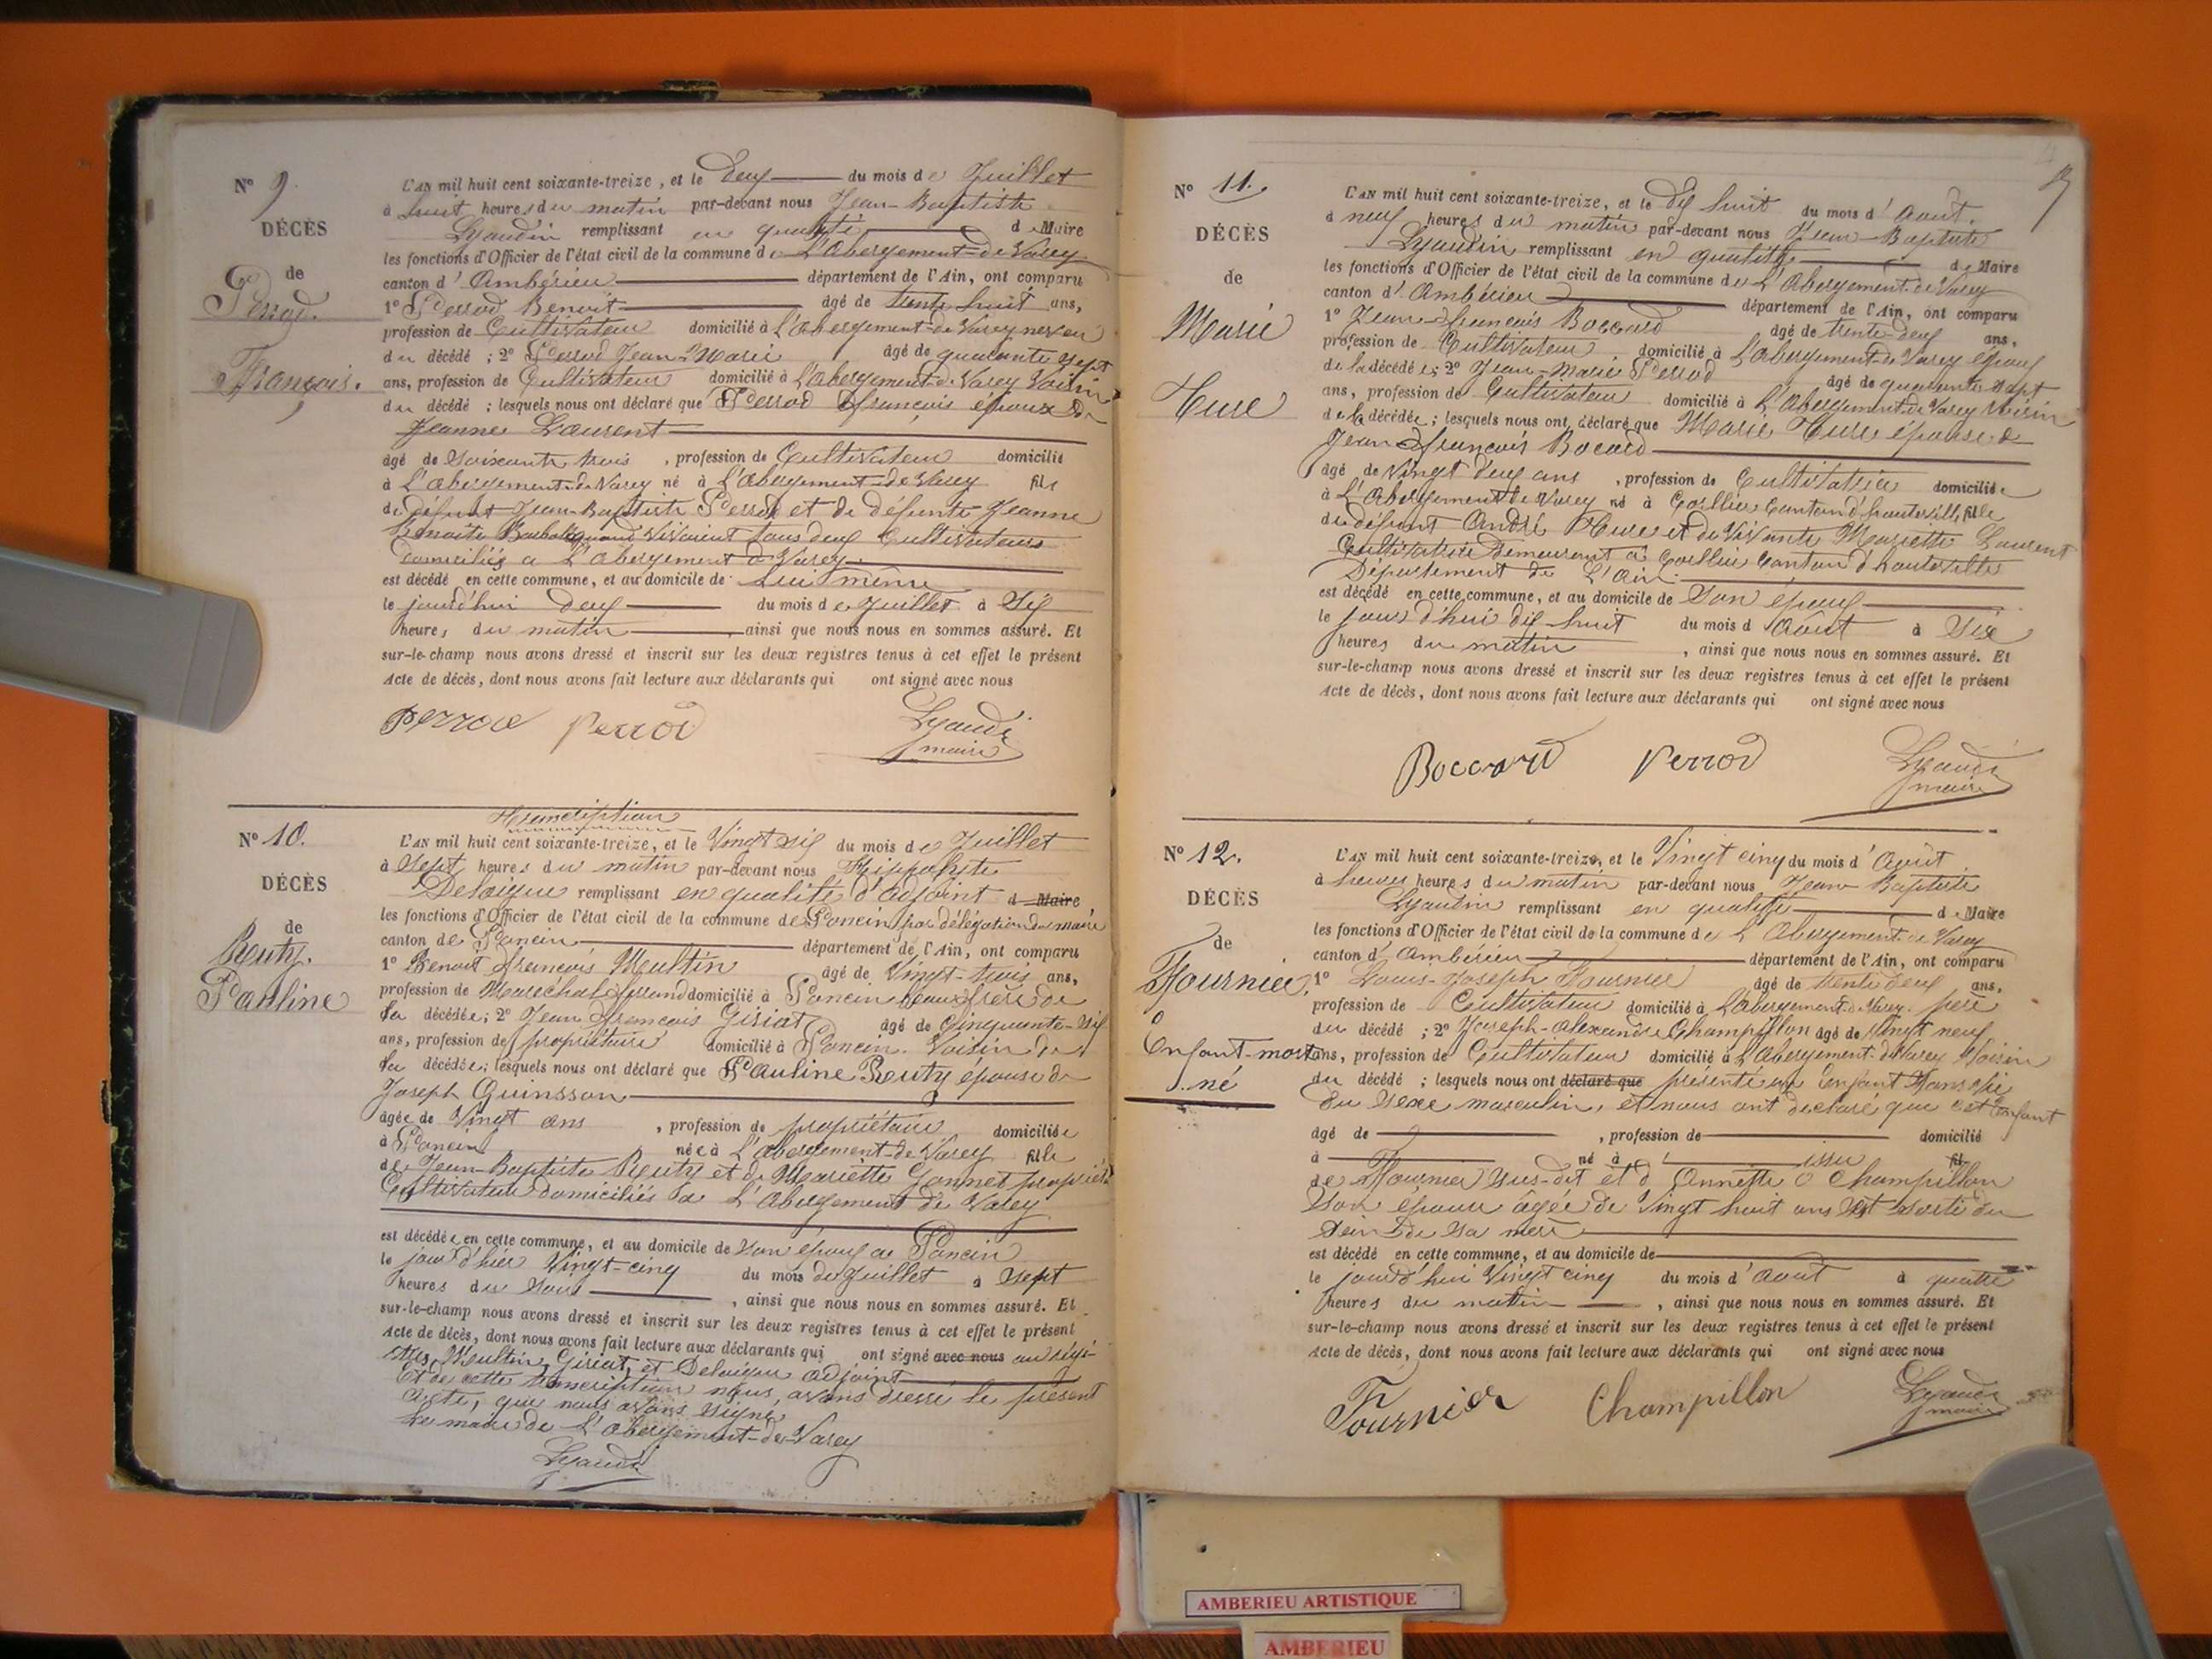 N° 9.
DÉCÈS
de
Perrod.
François.
L'AN mil huit cent soixante-treize, et le Deux du mois de Juillet
à huit heures du matin par-devant nous Jean-Baptiste
Lyaudin remplissant en qualité de Maire
les fonctions d'Officier de l'état civil de la commune de L'Abergement-de-Varey
canton d'Ambérieu département de l'Ain, ont comparu
1° Perrod Benoit âgé de trente huit ans,
profession de Cultivateur domicilié à L'abergement-de Varey neveu
du décédé ; 2° Perrod Jean Marie âgé de quarante sept
ans, profession de Cultivateur domicilié à L'abergement-de Varey Voisin
du décédé ; lesquels nous ont déclaré que Perrod François époux de
Jeanne Laurent
âgé de soixante trois , profession de Cultivateur domicilié
à L'abergement-de Varey né à L'abergement-de Varey fils
de défunt Jean-Baptiste Perrod et de défunte Jeanne
Benoite quand vivaient tous deux Cultivateurs
domiciliés a L'abergement de Varey
est décédé en cette commune, et au domicile de Lui même
le jourd'hui deux du mois de Juillet à Six
heures du matin , ainsi que nous nous en sommes assuré. Et
sur-le-champ nous avons dressé et inscrit sur les deux registres tenus à cet effet le présent
Acte de décès, dont nous avons fait lecture aux déclarants qui ont signé avec nous
Perrod Perrod Lyaudi
maire
N° 10.
DÉCÈS
de
Reuty.
Pauline
Transcription
L'AN mil huit cent soixante-treize, et le Vingt six du mois de Juillet
à Sept heures du matin par-devant nous Hippolyte
Delaigue remplissant en qualité d'adjoint d Maire
les fonctions d'Officier de l'état civil de la commune de Poncin par délégation du maire
canton de Poncin département de l'Ain, ont comparu
1° Benoit François Meultin âgé de Vingt-trois ans,
profession de Marechal ferrand domicilié à Poncin beau frère de
la décédée; 2° Jean François Giriat âgé de Cinquante-six
ans, profession de propriétaire domicilié à Poncin Voisin de
la décédée; lesquels nous ont déclaré que Pauline Reuty épouse de
Joseph Quinsson
âgée de Vingt ans , profession de propriétaire domiciliée
à Poncin née à L'abergement-de-Varey fille
de Jean-Baptiste Reuty et de Mariette Gonnet propriét
Cultivateurs domiciliés a L'Abergement de Varey
est décédée en cette commune, et au domicile de son époux a Poncin
le jour d'hier Vingt-cinq du mois de Juillet à Sept
heures du Soir , ainsi que nous nous en sommes assuré. Et
sur-le-champ nous avons dressé et inscrit sur les deux registres tenus à cet effet le présent
Acte de décès, dont nous avons fait lecture aux déclarants qui ont signé avec nous au régi-
stres Meultin, Giriat, et Delaigue adjoint
Et de cette transcription nous avons dressé le présent
acte, que nous avons signé
Le maire de L'abergement-de-Varey
Lyaudi
N° 11.
DÉCÈS
de
Marie
Hure
L'AN mil huit cent soixante-treize, et le dix huit du mois d'Aout.
à neuf heures du matin par-devant nous Jean-Baptiste
Lyaudin remplissant en qualité de Maire
les fonctions d'Officier de l'état civil de la commune de L'Abergement-de Varey
canton d'Ambérieu département de l'Ain, ont comparu
1° Jean-François Boccard âgé de trente deux ans,
profession de Cultivateur domicilié à L'abergement de Varey époux
de la décédée; 2° Jean-Marie Perrod âgé de quarante sept
ans, profession de Cultivateur domicilié à L'Abergement-de Varey Voisin
de la décédée; lesquels nous ont déclaré que Marie Hure épouse de
Jean François Bocard
âgé de Vingt deux ans , profession de Cultivatrice domiciliée
à L'Abergement de Varey né à Corllier Canton d'hauteville, fille
de defunt André Hure et de Vivante Mariette Laurent
Cultivatrice demeurant a Corllier Canton d'hauteville
Département de L'Ain
est décédé en cette commune, et au domicile de Son époux
le jour d'hui dix huit du mois d'Aout à Six
heures du matin , ainsi que nous nous en sommes assuré. Et
sur-le-champ nous avons dressé et inscrit sur les deux registres tenus à cet effet le présent
Acte de décès, dont nous avons fait lecture aux déclarants qui ont signé avec nous
Boccard Perrod Lyaudi
maire
N° 12.
DÉCÈS
de
Fournier
Enfant-mort
né
L'AN mil huit cent soixante-treize, et le Vingt cinq du mois d'Août
à heures du matin par-devant nous Jean-Baptiste
Lyaudin remplissant en qualité de Maire
les fonctions d'Officier de l'état civil de la commune de L'Abergement-de Varey
canton d'Ambérieu département de l'Ain, ont comparu
1° Louis-Joseph Fournier âgé de trente deux ans,
profession de Cultivateur domicilié à L'abergement-de Varey père
du décédé ; 2° Joseph-alexandre Champillon âgé de Vingt neuf
ans, profession de Cultivateur domicilié à L'Abergement-de Varey Voisin
du décédé ; lesquels nous ont déclaré que présenté un Enfant Sans vie
du sexe masculin, et nous ont déclaré que cet Enfant
âgé de , profession de domicilié
à né à issu fil
de Fournier sus-dit et d'Annette Champillon
son épouse âgée de Vingt huit ans est sorti du
sein de sa mère
est décédé en cette commune, et au domicile de
le jourd'hui Vingt cinq du mois d'Aout à quatre
heures du matin , ainsi que nous nous en sommes assuré. Et
sur-le-champ nous avons dressé et inscrit sur les deux registres tenus à cet effet le présent
Acte de décès, dont nous avons fait lecture aux déclarants qui ont signé avec nous
Fournier Champillon Lyaudi
maire
AMBERIEU ARTISTIQUE
AMBERIEU